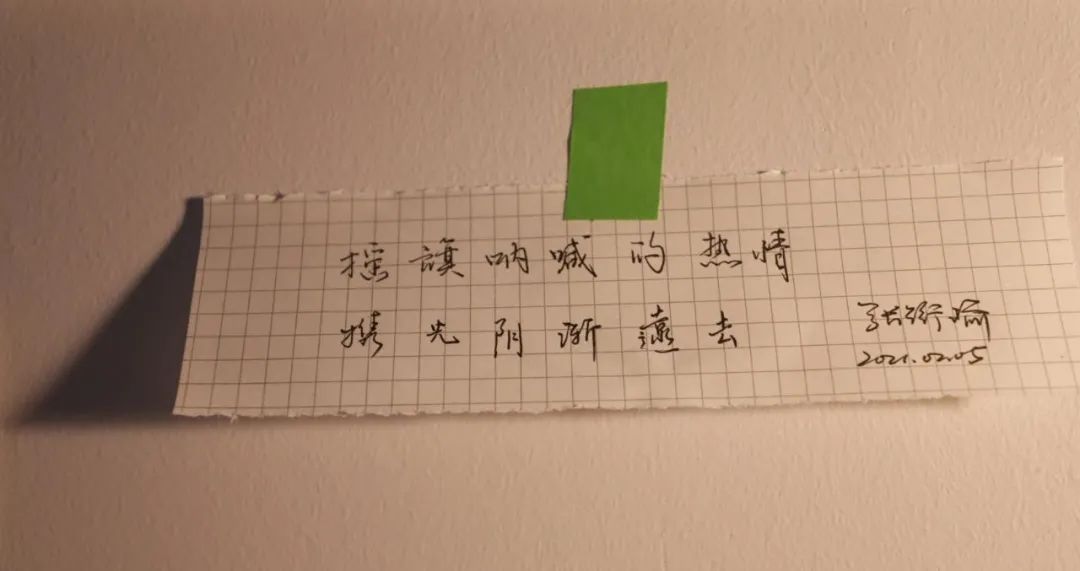 摇旗呐喊的热情
携光阴渐遠去
2021.02.05